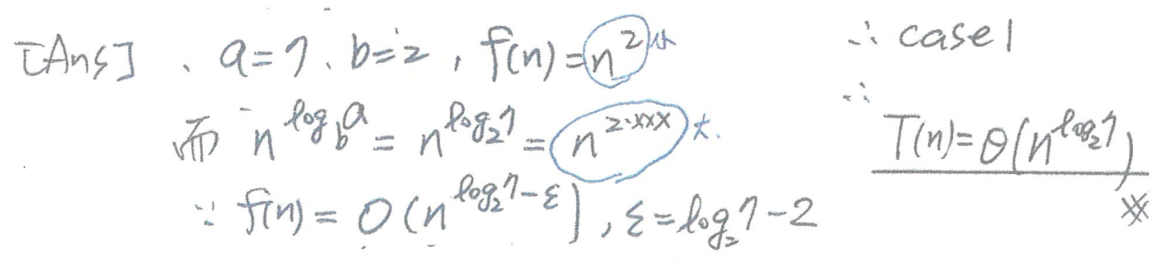 [Ans] 、a=7、b=2, f(n)=n^2 小
而 n^{log_b a} = n^{log_2 7} = n^{2.xxx} 大.
∵ f(n) = O(n^{log_2 7-ε}), ε=log_2 7-2
∴ case 1
∴
T(n)=θ(n^{log_2 7})
※